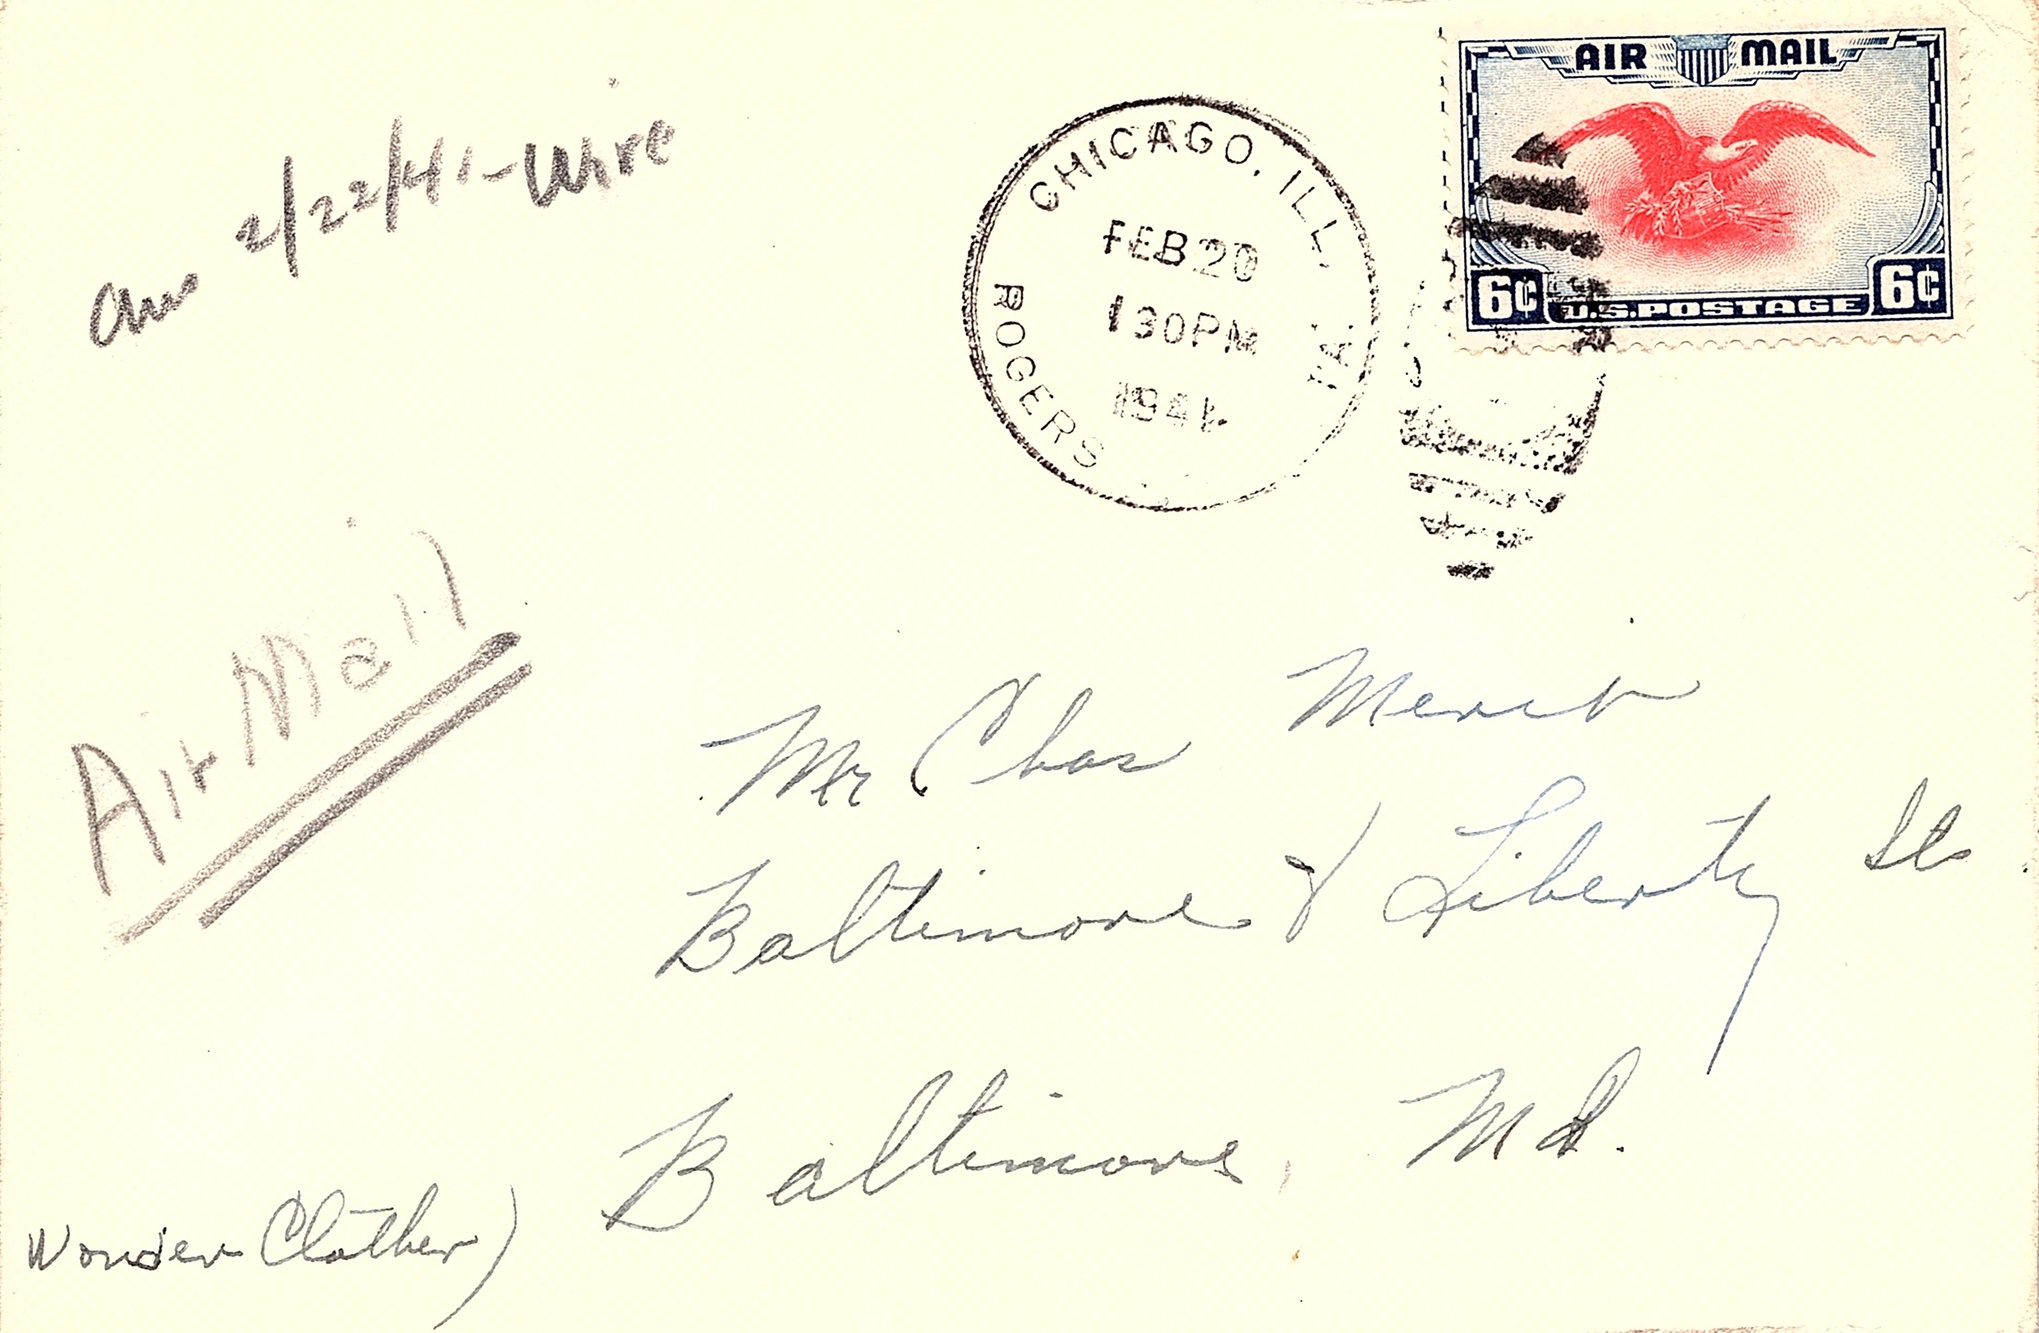 AIR MAIL
6¢ U.S. POSTAGE 6¢
CHICAGO, ILL,
FEB 20
1 30 PM
1941
ROGERS PA.
Ans 2/22/41 - Wire
Air Mail
Mr Chas Merit
Baltimore & Liberty Sts
Baltimore, Md.
Wonder Clother)